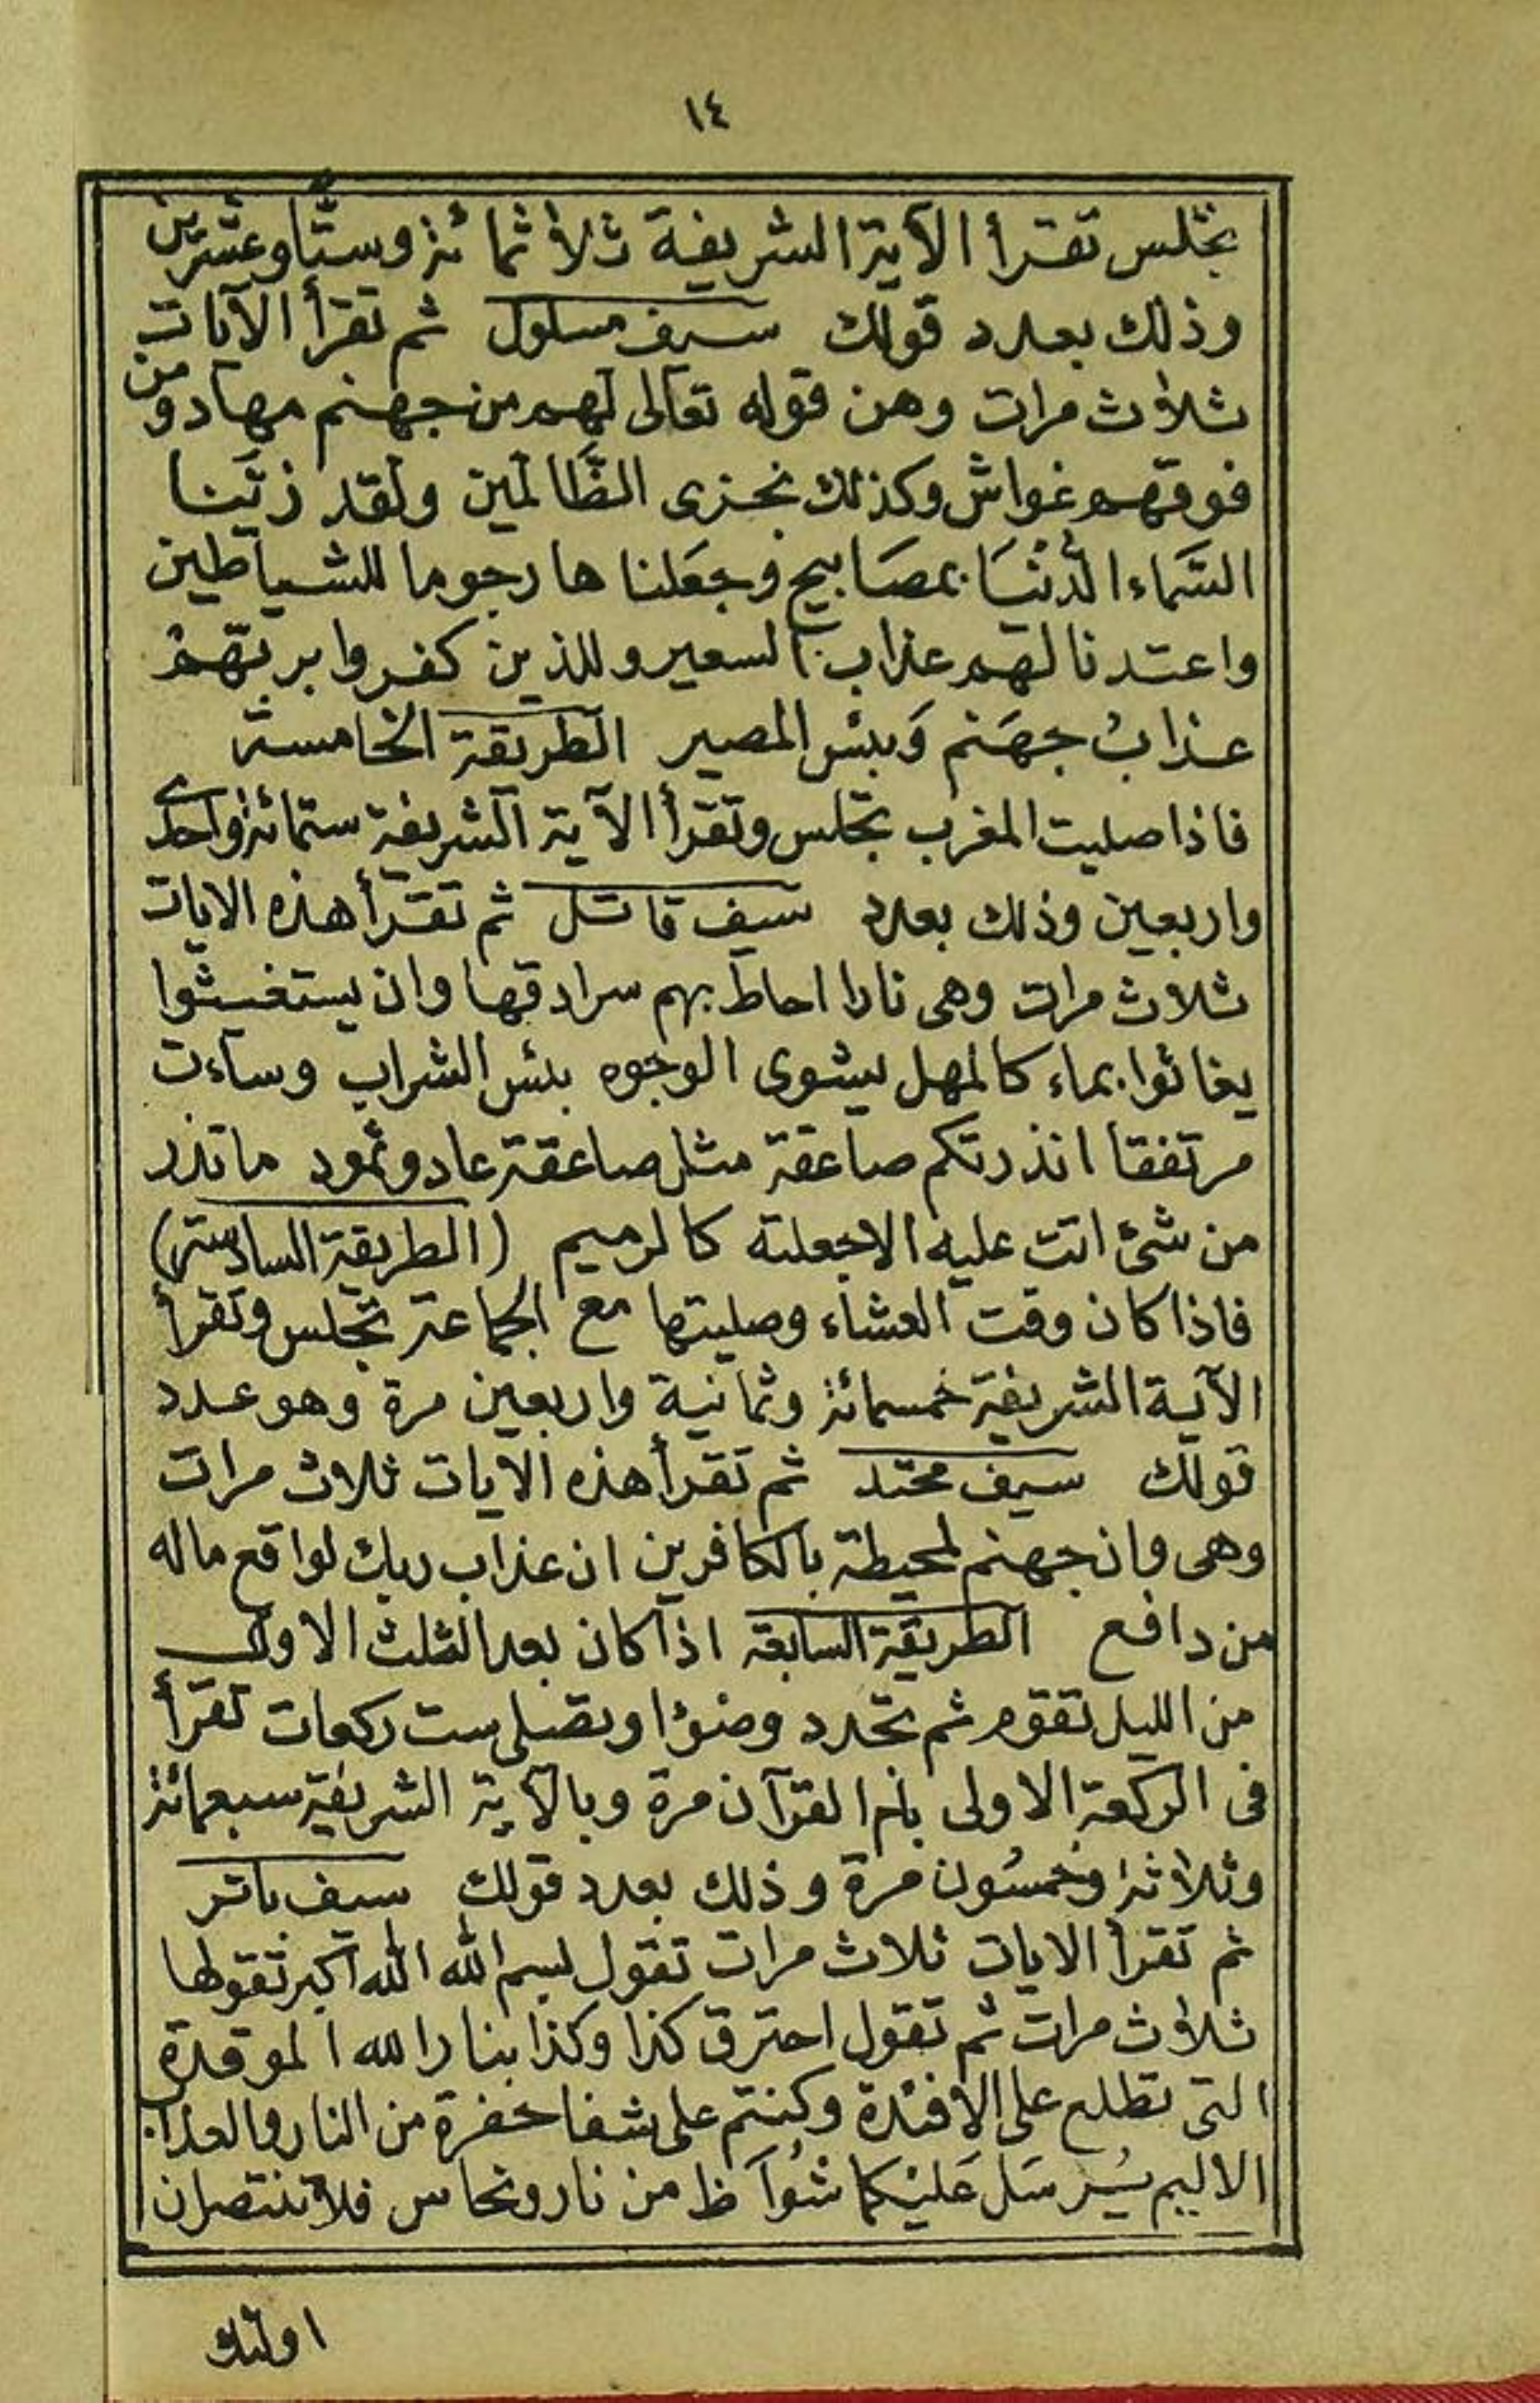 ١٤
تجلس تقرأ الآية الشريفة ثلاثمائة وستا وعشرين
وذلك بعدد قولك سيف مسلول ثم تقرأ الآيات
ثلاث مرات وهن قوله تعالى لهم من جهنم مهاد ومن
فوقهم غواش وكذلك نجزى الظَّالمين ولقد زيَّنا
السَّماء الدُّنْيَا بمصَابيح وجعَلنا ها رجوما للشياطين
واعتدنا لهم عذاب السعير وللذين كفروا بربّهمْ
عذابُ جهَنم وَبئس المصير الطريقة الخامسة
فاذا صليت المغرب تجلس وتقرأ الآية الشريفة ستمائة واحدى
واربعين وذلك بعدد سيف قاتل ثم تقرأ هذه الايات
ثلاث مرات وهى نارا احاط بهم سرادقها وان يستغيثوا
يغاثوا بماء كالمهل يشوى الوجوه بئس الشراب وساءت
مرتفقا انذرتكم صاعقة مثل صاعقة عاد وثمود ماتذر
من شئ اتت عليه الاجعلته كالرميم (الطريقة السادسة)
فاذا كان وقت العشاء وصليتها مع الجماعة تجلس وتقرأ
الآية الشريفة خمسمائة وثمانية واربعين مرة وهو عدد
قولك سيف محتد ثم تقرأ هذه الايات ثلاث مرات
وهى وان جهنم لمحيطة بالكافرين ان عذاب ربك لواقع ماله
من دافع الطريقة السابعة اذا كان بعد الثلث الاول
من الليل تقوم ثم تجدد وضوًا وتصلى ست ركعات تقرأ
فى الركعة الاولى بأم القرآن مرة وبالآية الشريفة سبعمائة
وثلاثة وخمسُون مرة وذلك بعدد قولك سيف باتر
ثم تقرأ الايات ثلاث مرات تقول بسم الله الله اكبر تقولها
ثلاث مرات ثم تقول احترق كذا وكذا بنار الله الموقدة
التى تطلع على الافئدة وكنتم على شفا حفرة من النار والعذاب
الاليم يُرسَل عَليْكما شُوَاظ من نار ونحاس فلا تنتصران
اولئك